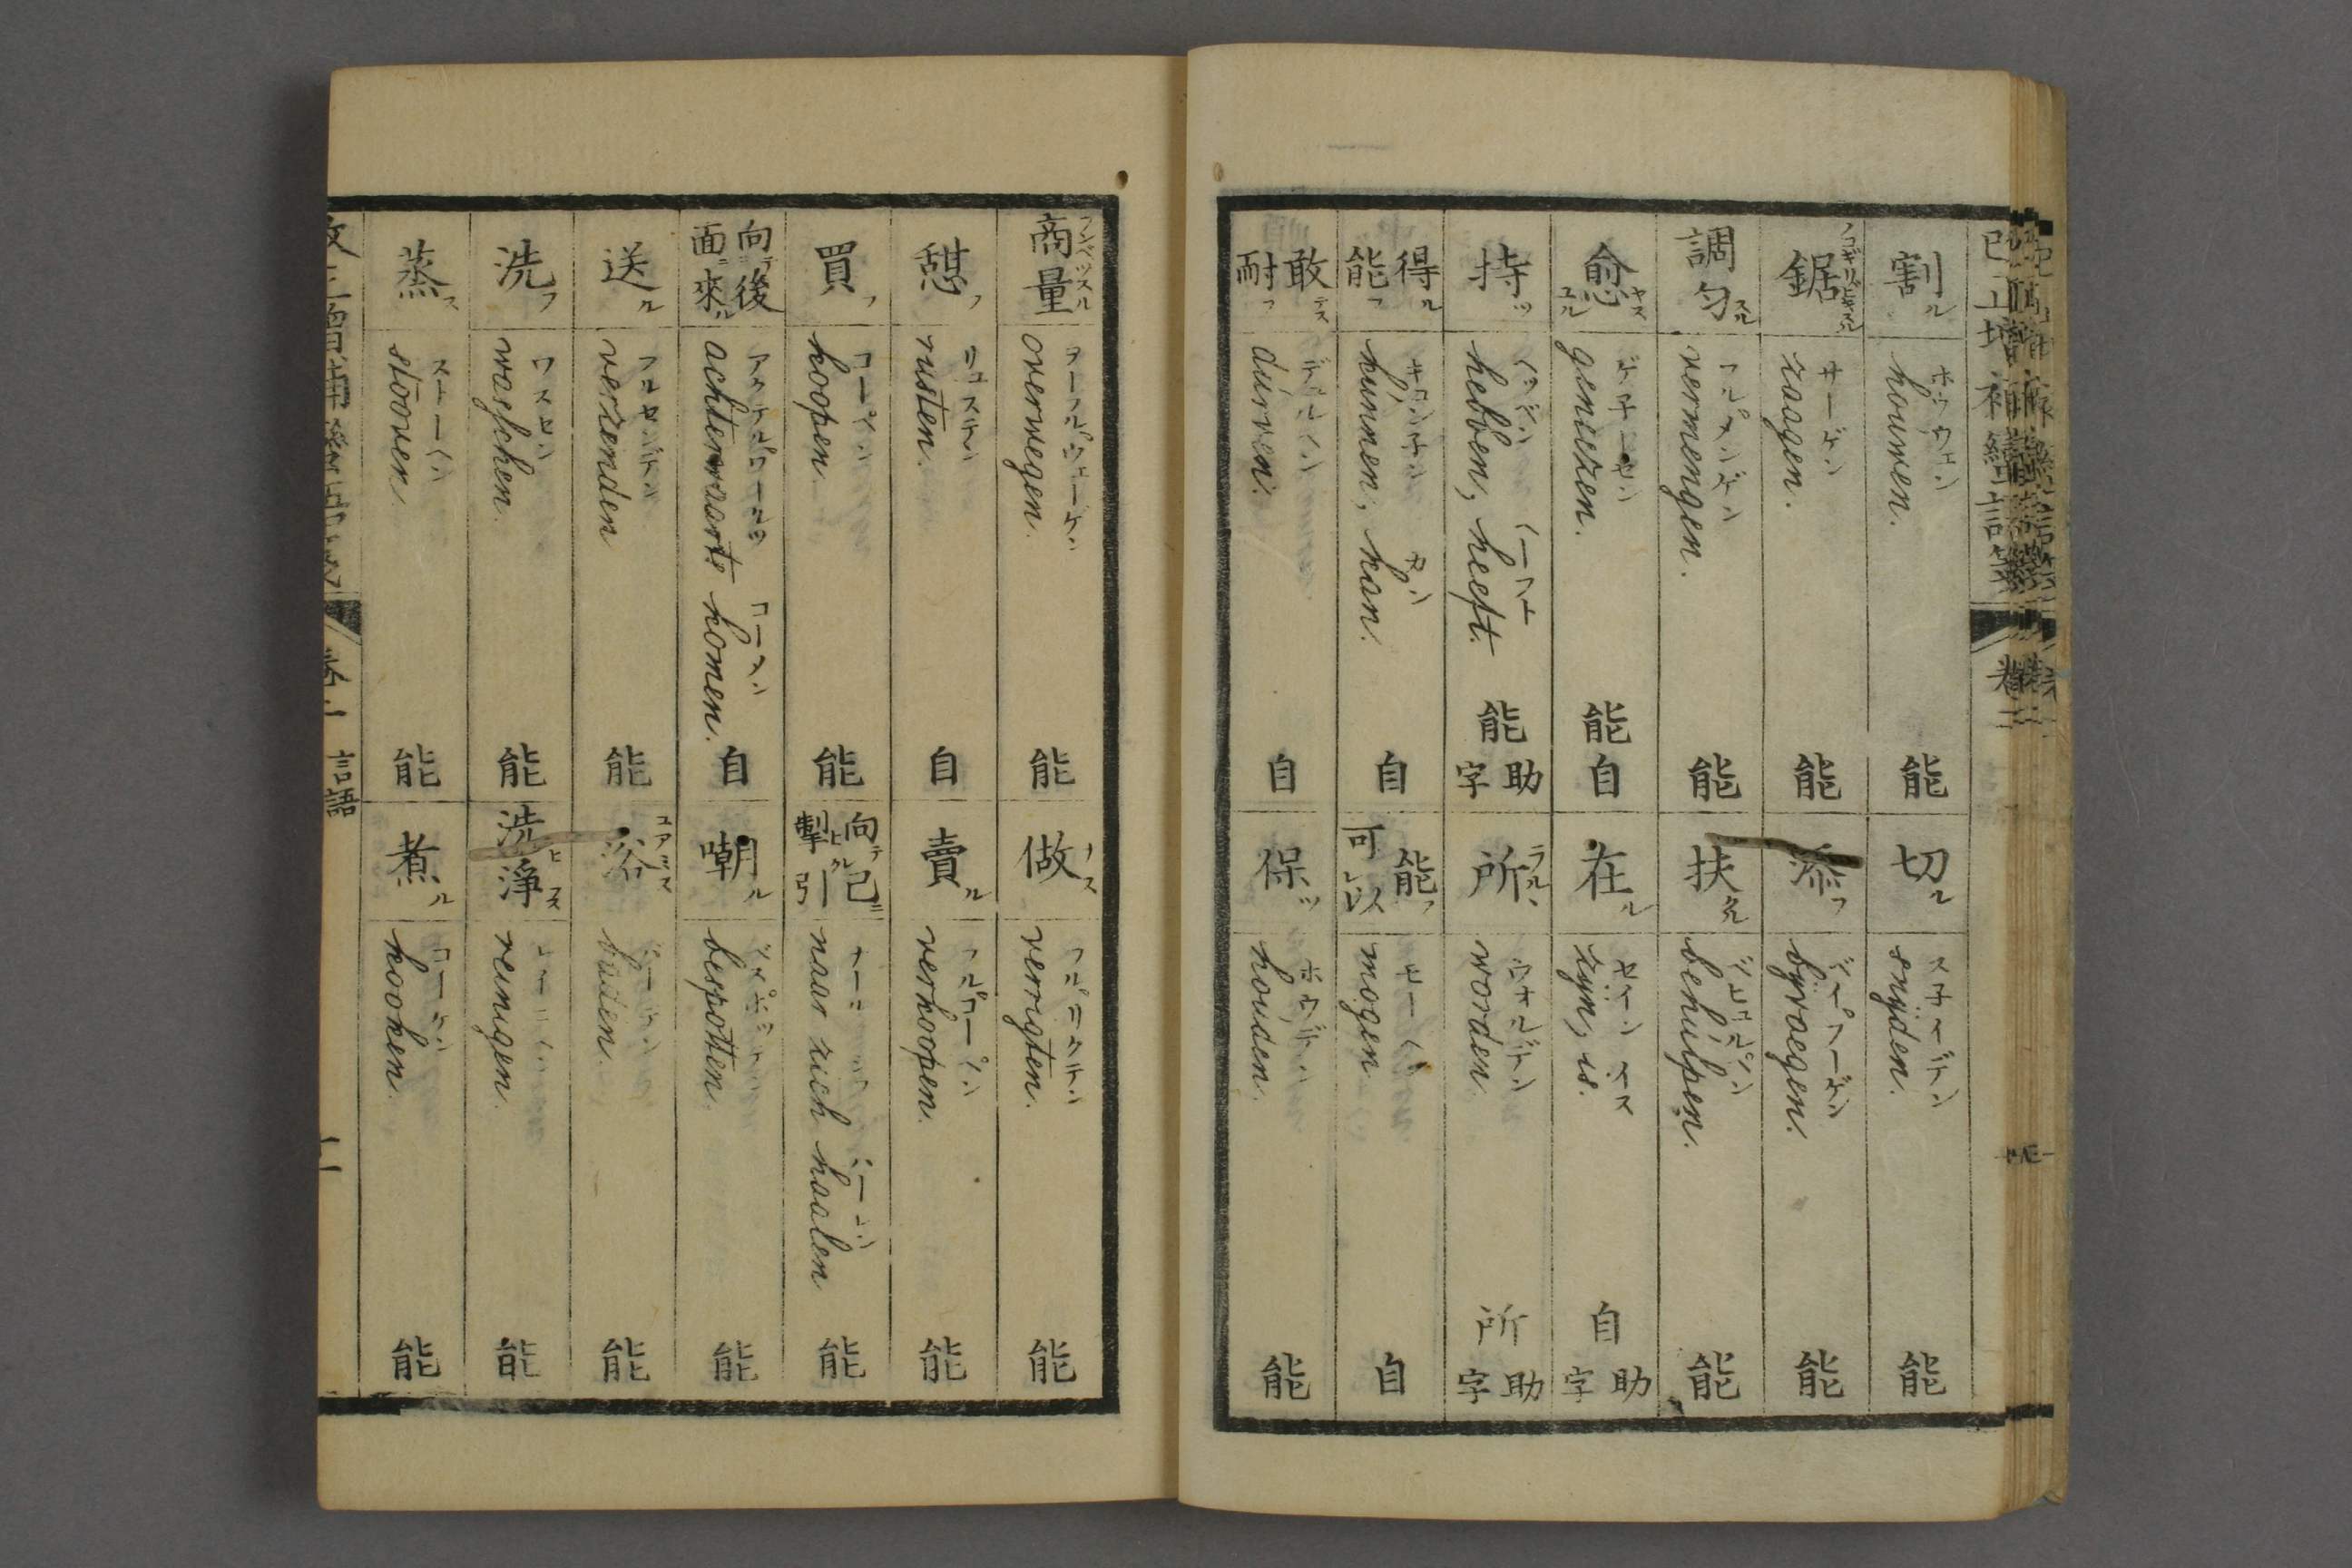 割ル
ホウウェン
houwen.
能
切ル
スネイデン
snijden.
能
鋸ノコギリビキスル
サーゲン
zaagen.
能
添フ
ベイフーゲン
byvoegen.
能
調匀スル
フルメンゲン
vermengen.
能
扶タスクル
ベヒュルペン
behulpen.
能
愈ヤスユル
ゲネーセン
geniezen.
能 自
在ル
セイン イス
zijn, is.
自 助字
持ツ
ヘッベン ヘーフト
hebben, heeft.
能 助字
所ラルヽ
ウオルデン
worden.
所 助字
得ル 能フ
キュンネン カン
kunnen, kan.
自
能フ 可レ以
モーゲン
mogen.
自
敢テス 耐フ
デュルヘン
durven.
自
保ツ
ホウデン
houden.
能
商量フンベツスル
ヲーフルウェーゲン
overwegen.
能
做ナス
フルリクテン
verrigten.
能
憇フ
リュステン
rusten.
自
賣ル
フルコーペン
verkoopen.
能
買フ
コーペン
koopen.
能
向テ己ニ 掣ヒク引
naar zich haalen
能
向テ後 面ニ來ル
アクテルワールツ コーメン
achterwaarts komen.
自
嘲ル
ベスポッテン
bespotten.
能
送ル
フルセンデン
verzenden
能
浴ユアミス
バーデン
能
洗フ
ワスセン
wasschen.
能
洗ヒ淨ス
レイニゲン
reinigen.
能
蒸ス
ストーヘン
stooven.
能
煮ル
コーケン
kooken.
能
言語